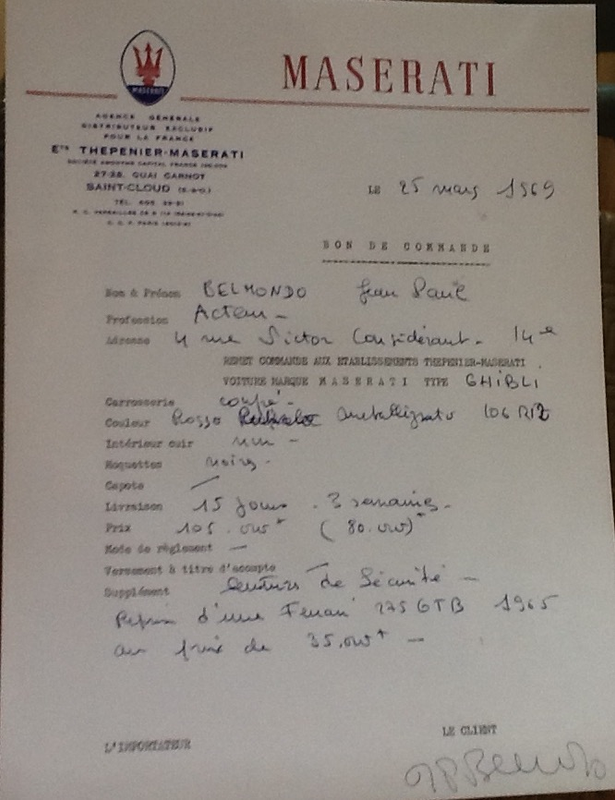 MASERATI
MASERATI
AGENCE GÉNÉRALE
DISTRIBUTEUR EXCLUSIF
POUR LA FRANCE
Ets THEPENIER-MASERATI
27-28, QUAI CARNOT
SAINT-CLOUD (S.-&-O.)
LE 25 mars 1969
BON DE COMMANDE
Nom & Prénom BELMONDO Jean Paul
Profession Acteur -
Adresse 4 rue Victor Considérant - 14e
REMET COMMANDE AUX ETABLISSEMENTS THEPENIER-MASERATI
VOITURE MARQUE MASERATI TYPE GHIBLI
Carrosserie coupé -
Couleur Rosso metallizzato 106 R12
Intérieur cuir noir -
Moquettes noires -
Capote -
Livraison 15 jours - 3 semaines -
Prix 105.000+ (80.000)+
Mode de règlement -
Versement à titre d'acompte -
Supplément Ceintures de Sécurité -
Reprise d'une Ferrari 275 GTB 1965
au prix de 35,000+ -
L'IMPORTATEUR
LE CLIENT
JP Belmondo